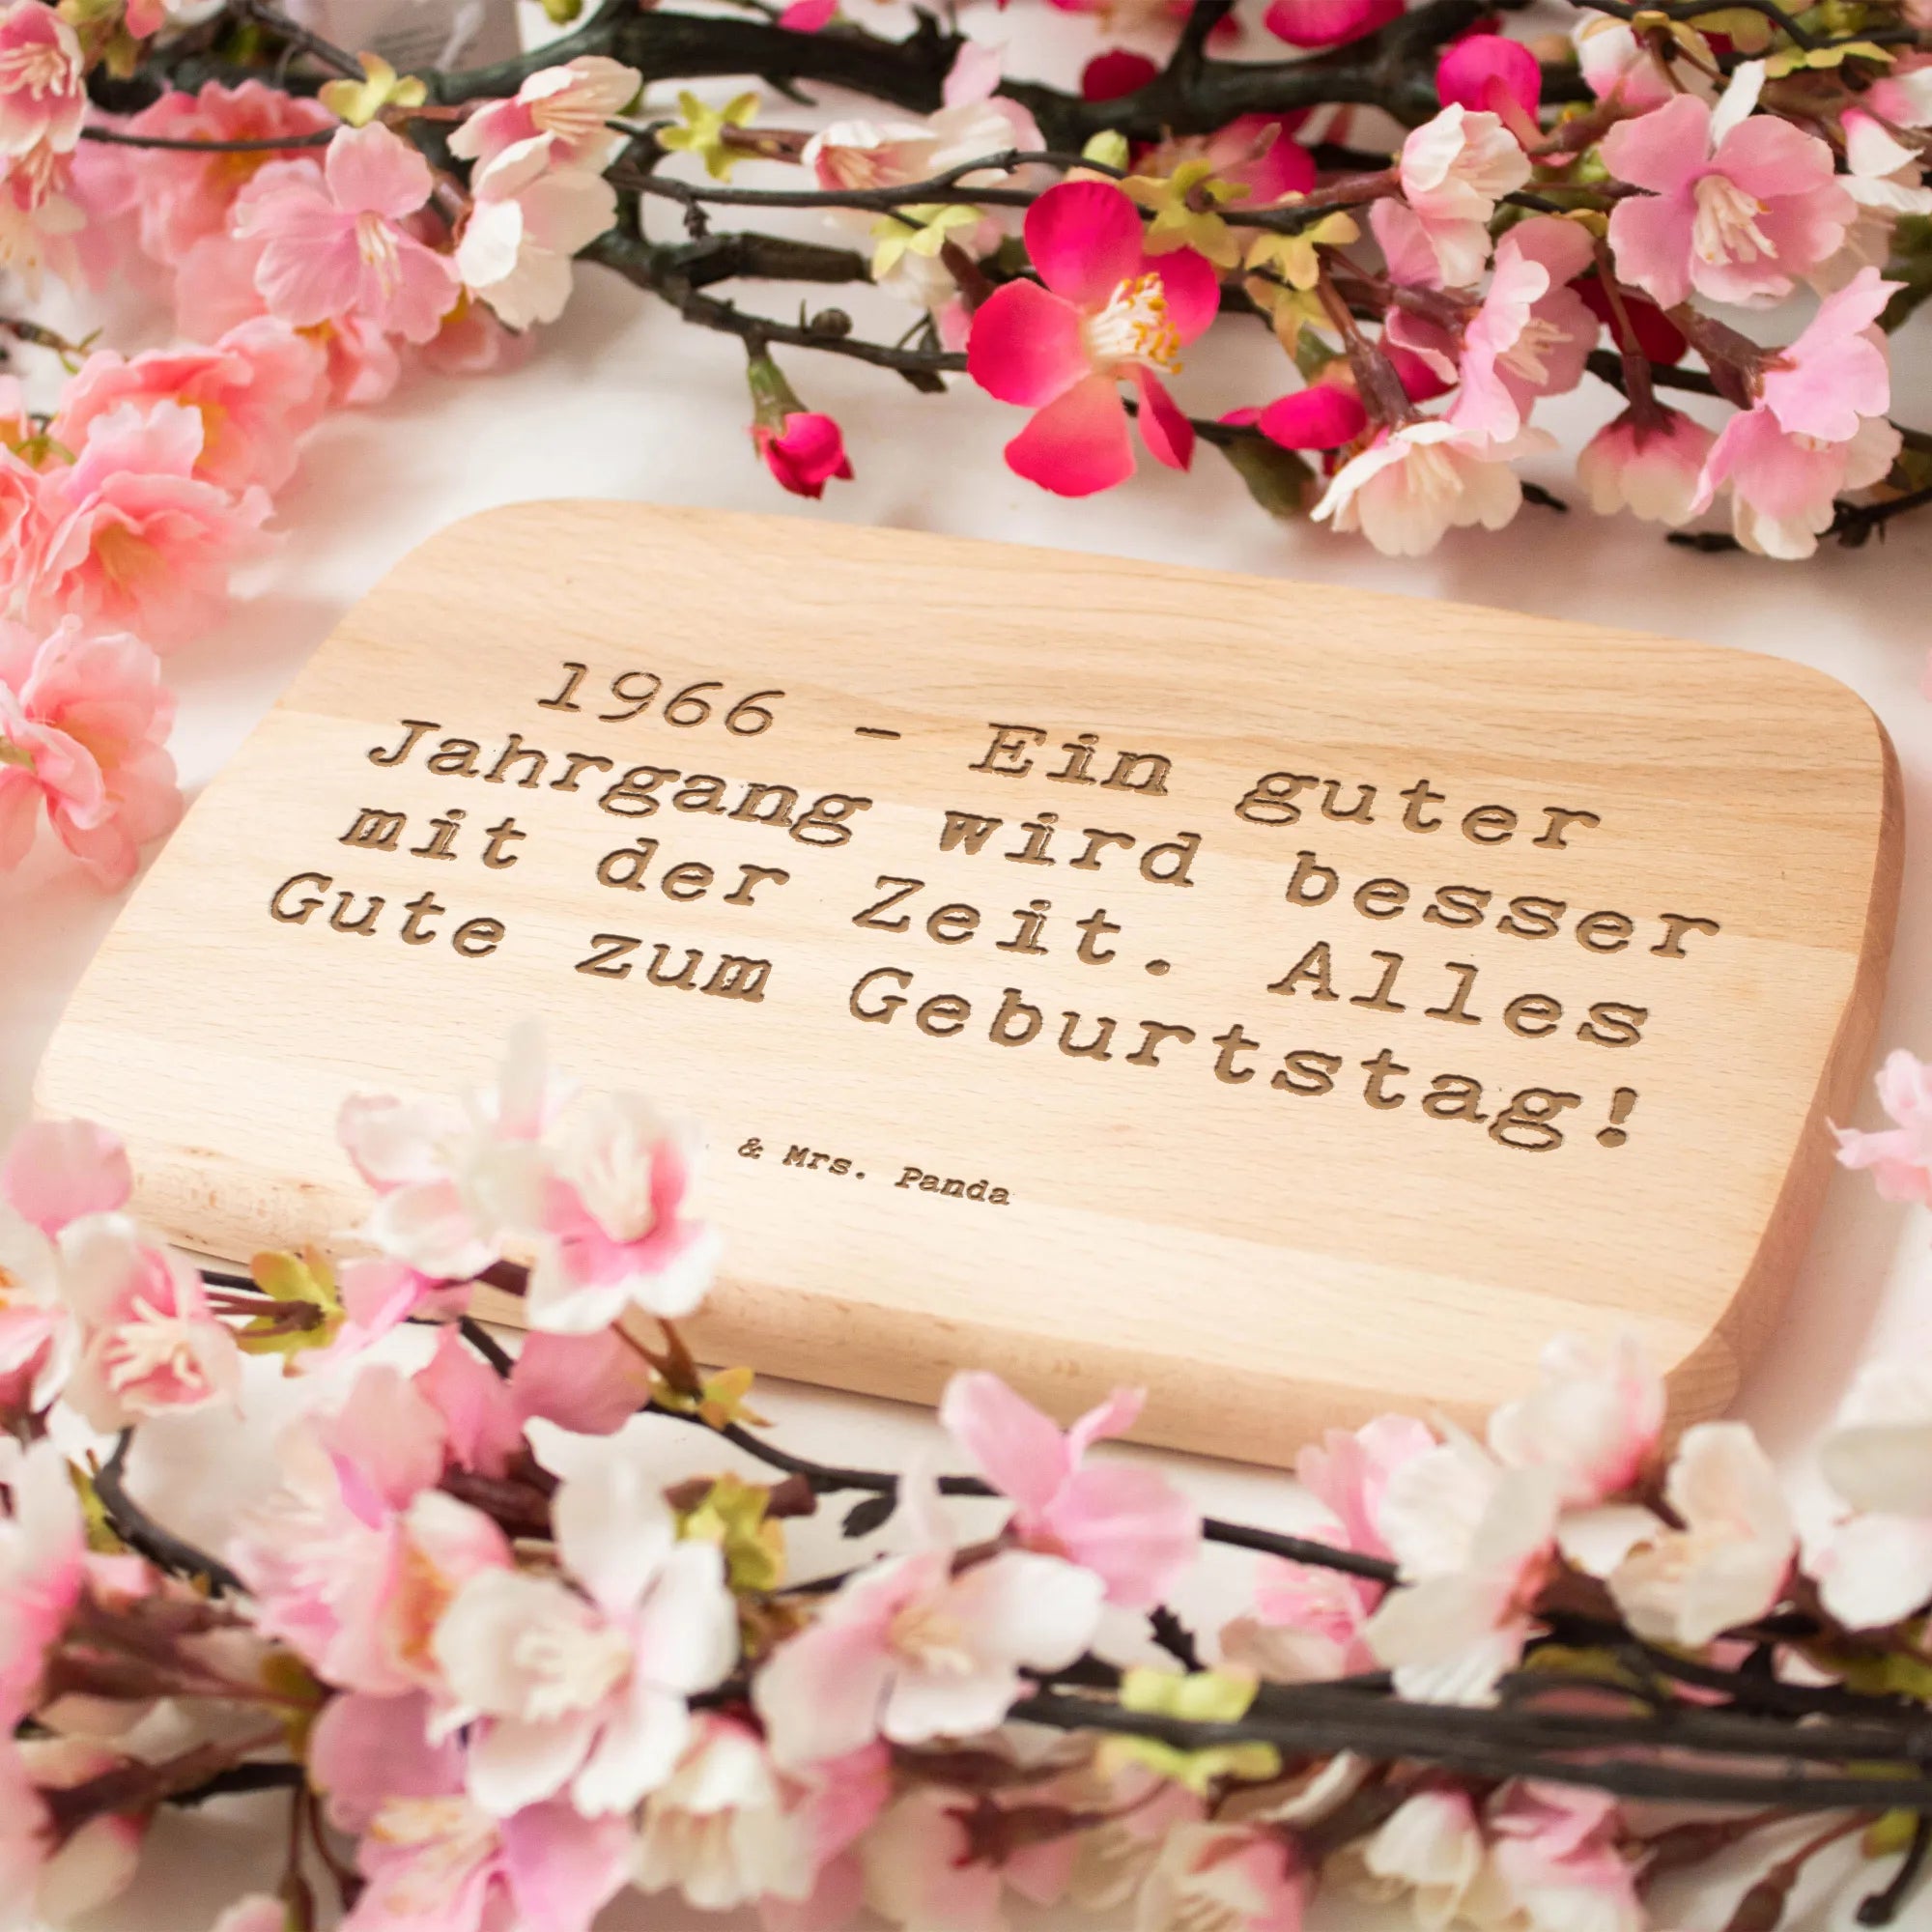 1966 - Ein guter
Jahrgang wird besser
mit der Zeit. Alles
Gute zum Geburtstag!
& Mrs. Panda